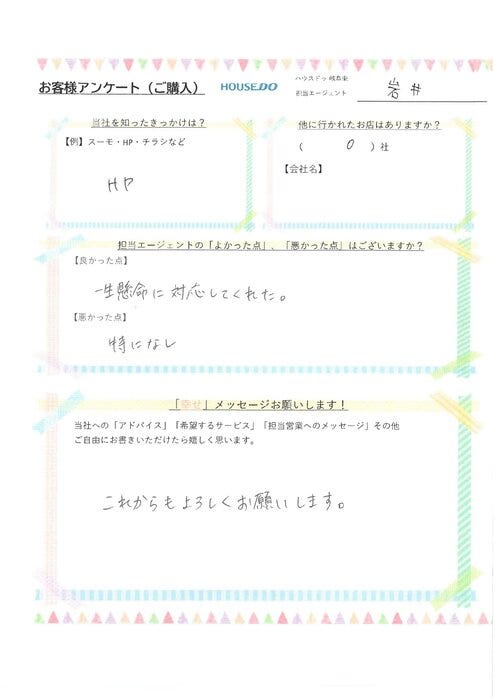 お客様アンケート（ご購入）
HOUSEDO
ハウスドゥ 岐阜東
担当エージェント 岩井
当社を知ったきっかけは？
【例】スーモ・HP・チラシなど
HP
他に行かれたお店はありますか？
（ 0 ）社
【会社名】
担当エージェントの「よかった点」、「悪かった点」はございますか？
【良かった点】
一生懸命に対応してくれた。
【悪かった点】
特になし
「幸せ」メッセージお願いします！
当社への「アドバイス」『希望するサービス」「担当営業へのメッセージ」その他
ご自由にお書きいただけたら嬉しく思います。
これからもよろしくお願いします。